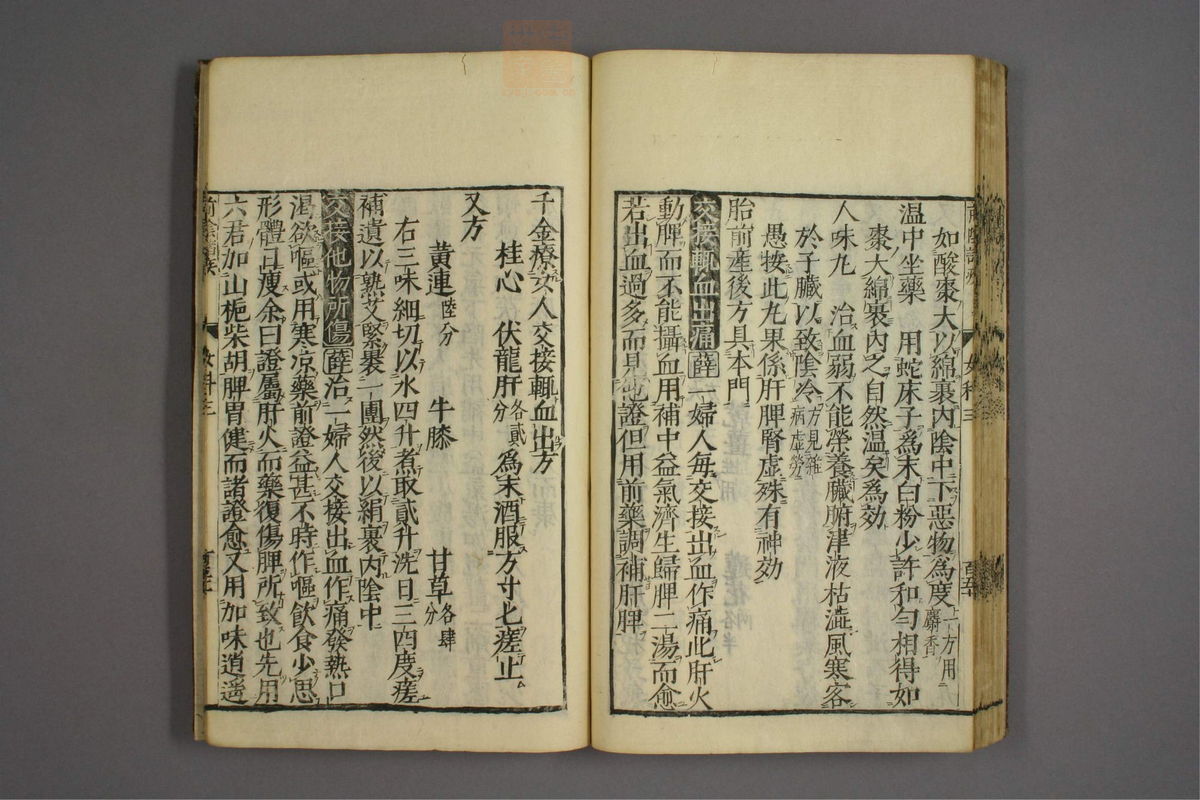 如酸棗大以綿裹内陰中下惡物為度上一方用麝香
温中坐藥 用蛇床子為末白粉少許和勻相得如
棗大綿裹内之自然温矣為効
人味丸 治血弱不能榮養臟腑津液枯澁風寒客
於子臟以致陰冷方見雜病虚勞
愚按此丸果係肝脾腎虚殊有神効
胎前産後方具本門
交接輒血出痛 薛一婦人每交接出血作痛此肝火
動脾而不能攝血用補中益氣濟生歸脾二湯而愈
若出血過多而見他證但用前藥調補肝脾
千金療女人交接輒血出方
桂心 伏龍肝各貳分 為末酒服方寸匕瘥止
又方
黄連陸分 牛膝 甘草各肆分
右三味細切以水四升煮取貳升洗日三四度瘥
補遺以熟艾緊裹一團然後以絹裹内陰中
交接他物所傷 薛治一婦人交接出血作痛發熱口
渴欲嘔或用寒凉藥前證益甚不時作嘔飲食少思
形體日瘦余曰證屬肝火而藥復傷脾所致也先用
六君加山梔柴胡脾胃健而諸證愈又用加味逍遥
女科三
女科三